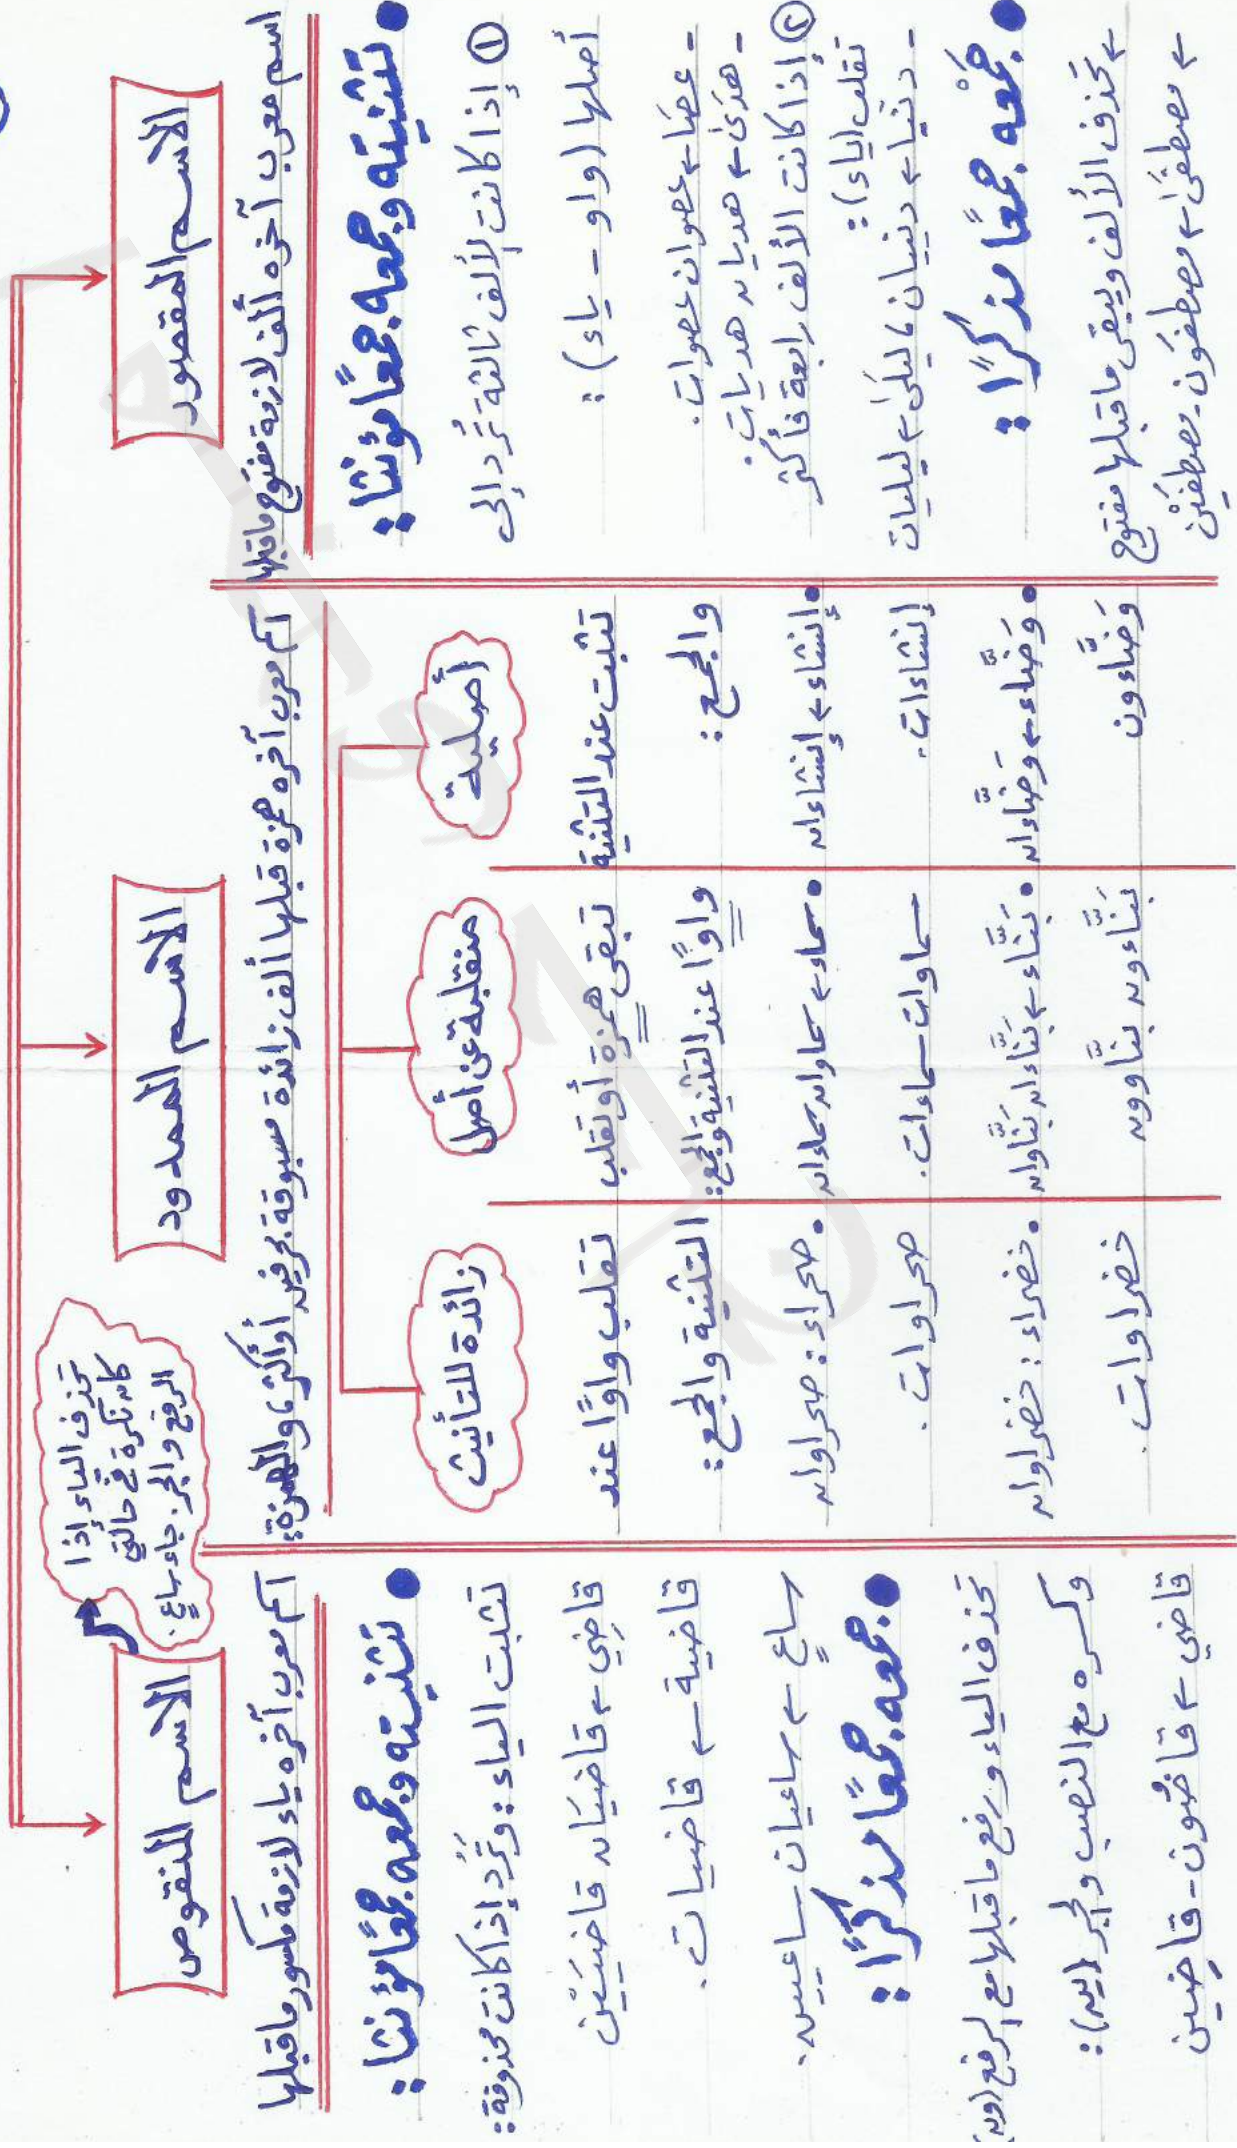 الاسم المقصور
اسم معرب آخره ألف لازمة مفتوح ما قبلها
• تثنيته وجمعه جمعًا مؤنثا:
① إذا كانت الألف ثالثة تُرد إلى
أصلها (واو - ياء):
- عصا ← عصوان عصوات.
- هدى ← هديان هديات.
② إذا كانت الألف رابعة فأكثر
تقلب (ياء):
- دنيا ← دنييان، ليلى ← ليليات
• جَمْعه جمعًا مذكرًا:
← تحذف الألف ويبقى ما قبلها مفتوح
← مصطفَى ← مصطفَون - مصطفَيْن
الاسم الممدود
اسم معرب آخره همزة قبلها ألف زائدة مسبوقة بحرفين أو أكثر، والهمزة:
أصلية
تثبت عند التثنية
والجمع:
• إنشاء ← إنشاءان
إنشاءات.
• وَضَّاء ← وَضَّاءان
وَضَّاءون
منقلبة عن أصل
تبقى همزة أو تقلب
واوًا عند التثنية والجمع:
• سماء ← سماوان سماءان
سماوات سماءات.
• بَنَّاء ← بَنَّاءان بَنَّاوان
بَنَّاءون بنَّاوون
زائدة للتأنيث
تقلب واوًا عند
التثنية والجمع:
• صحراء: صحراوان
صحراوات.
• خضراء: خضراوان
خضراوات.
الاسم المنقوص
تحذف الياء إذا
كان نكرة في حالتي
الرفع والجر. جاء ساعٍ.
اسم معرب آخره ياء لازمة مكسور ما قبلها
• تثنيته وجمعه جمعًا مؤنثا:
تثبت الياء: وتُرد إذا كانت محذوفة:
قاضِي ← قاضيَان قاضيَيْن
قاضية ← قاضيات.
ساعٍ ← ساعيان ساعيين.
• جمعه جمعًا مذكرًا:
تحذف الياء ورفع ما قبلها مع الرفع (ون)
وكسره مع النصب والجر (ين):
قاضي ← قاضُون - قاضِين